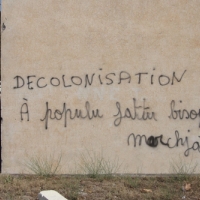 DECOLONISATION
À populu fattu bisog
marchjà